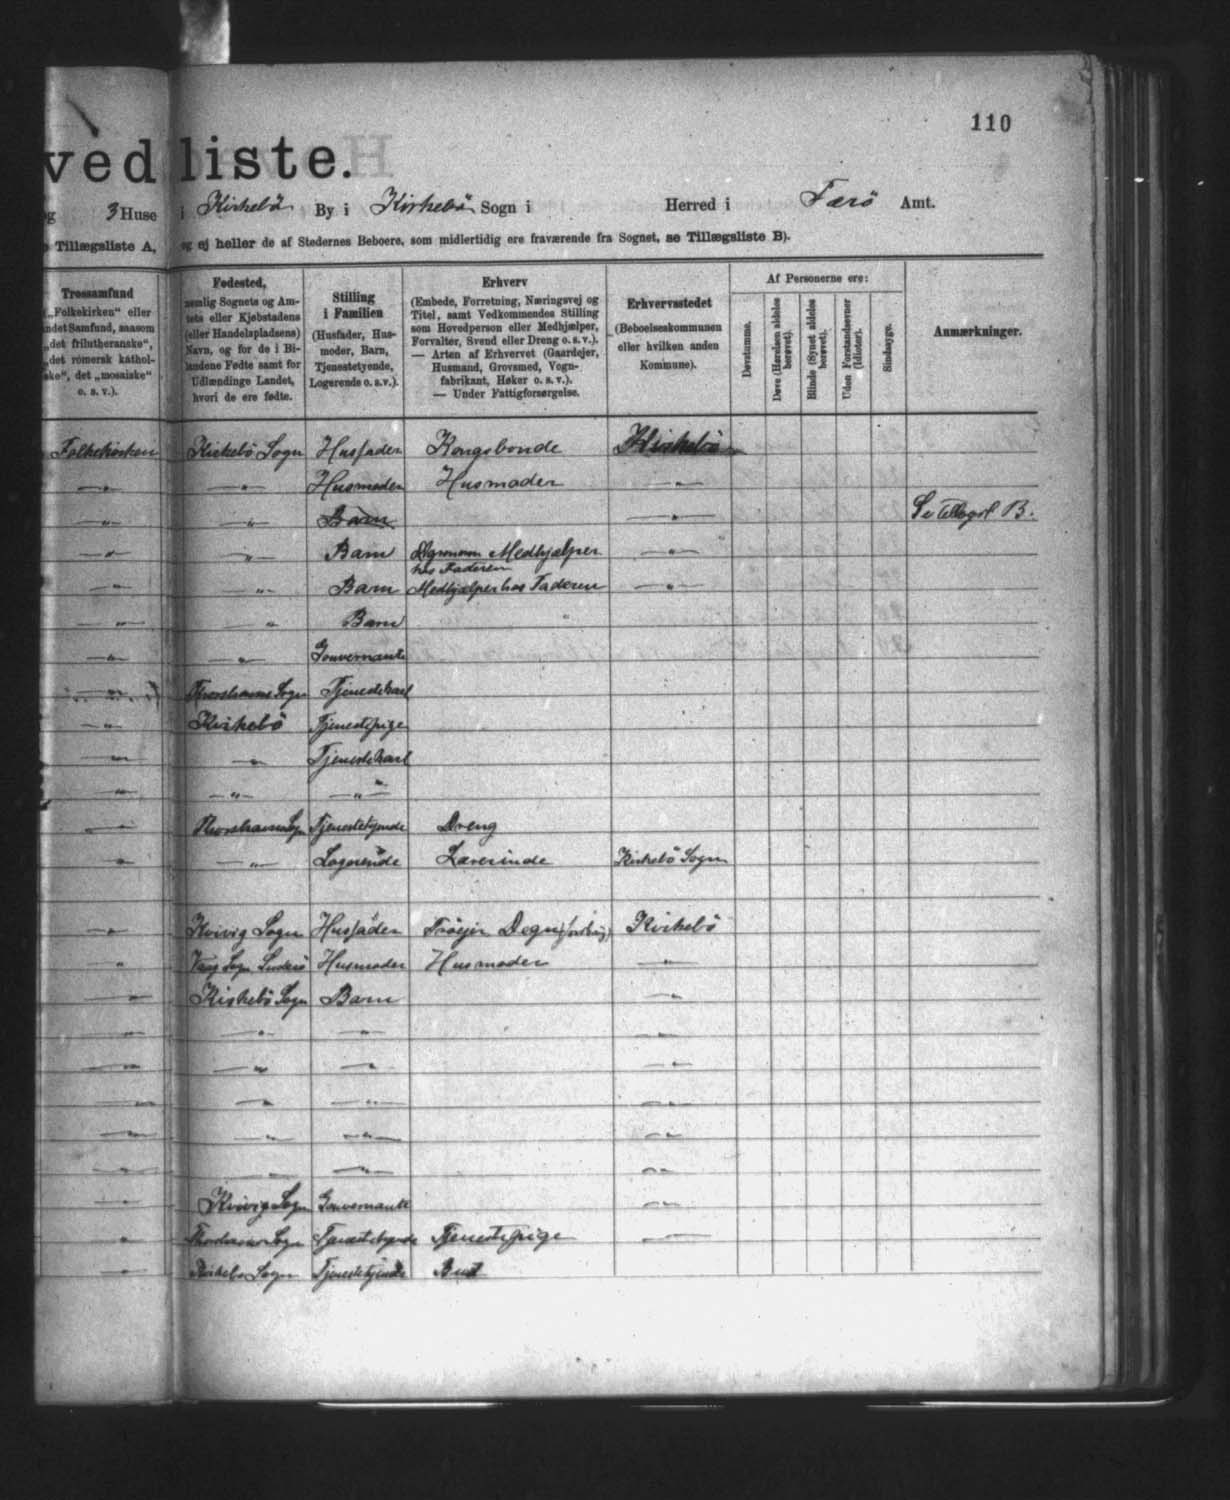 110
ved liste.
3 Huse i Kirkebö By i Kirkebö Sogn i Herred i Færö Amt.
Tillægsliste A, og ej heller de af Stedernes Beboere, som midlertidig ere fraværende fra Sognet, se Tillægsliste B).
Trossamfund
(„Folkekirken“ eller
andet Samfund, saasom
„det frilutheranske“,
„det romersk kathol-
ske“, det „mosaiske“
o. s. v.).
Fødested,
nemlig Sognets og Am-
tets eller Kjøbstadens
(eller Handelspladsens)
Navn, og for de i Bi-
landene Fødte samt for
Udlændinge Landet,
hvori de ere fødte.
Stilling
i Familien
(Husfader, Hus-
moder, Barn,
Tjenestetyende,
Logerende o. s. v.).
Erhverv
(Embede, Forretning, Næringsvej og
Titel, samt Vedkommendes Stilling
som Hovedperson eller Medhjælper,
Forvalter, Svend eller Dreng o. s. v.).
— Arten af Erhvervet (Gaardejer,
Husmand, Grovsmed, Vogn-
fabrikant, Høker o. s. v.).
— Under Fattigforsørgelse.
Erhvervsstedet
(Beboelseskommunen
eller hvilken anden
Kommune).
Af Personerne ere:
Døvstumme.
Døve (Hørelsen aldeles
berøvet).
Blinde (Synet aldeles
berøvet).
Uden Forstandsevner
(Idioter).
Sindssyge.
Anmærkninger.
Folkekirken Kirkebö Sogn Husfader Kongsbonde Kirkebö
—"— —"— Husmoder Husmoder —"—
—"— —"— Barn —"— Se Tillægsl B.
—"— —"— Barn Medhjælper —"—
hos Faderen
—"— —"— Barn Medhjælper hos Faderen —"—
—"— —"— Barn
—"— —"— Gouvernante
—"— Thorshavns Sogn Tjenestekarl
—"— Kirkebö Tjenestepige
—"— —"— Tjenestekarl
—"— —"— —"—
—"— Thorshavns Sogn Tjenestetyende Dreng
—"— —"— Logerende Lærerinde Kirkebö Sogn
—"— Kvivig Sogn Husfader Degn Kirkebö
—"— Vaag Sogn Suderö Husmoder Husmoder —"—
—"— Kirkebö Sogn Barn —"—
—"— —"— —"— —"—
—"— —"— —"— —"—
—"— —"— —"— —"—
—"— —"— —"— —"—
—"— —"— —"— —"—
—"— Kvivig Sogn Gouvernante —"—
—"— Thorshavns Sogn Tjenestetyende Tjenestepige —"—
—"— Kirkebö Sogn Tjenestetyende Bud